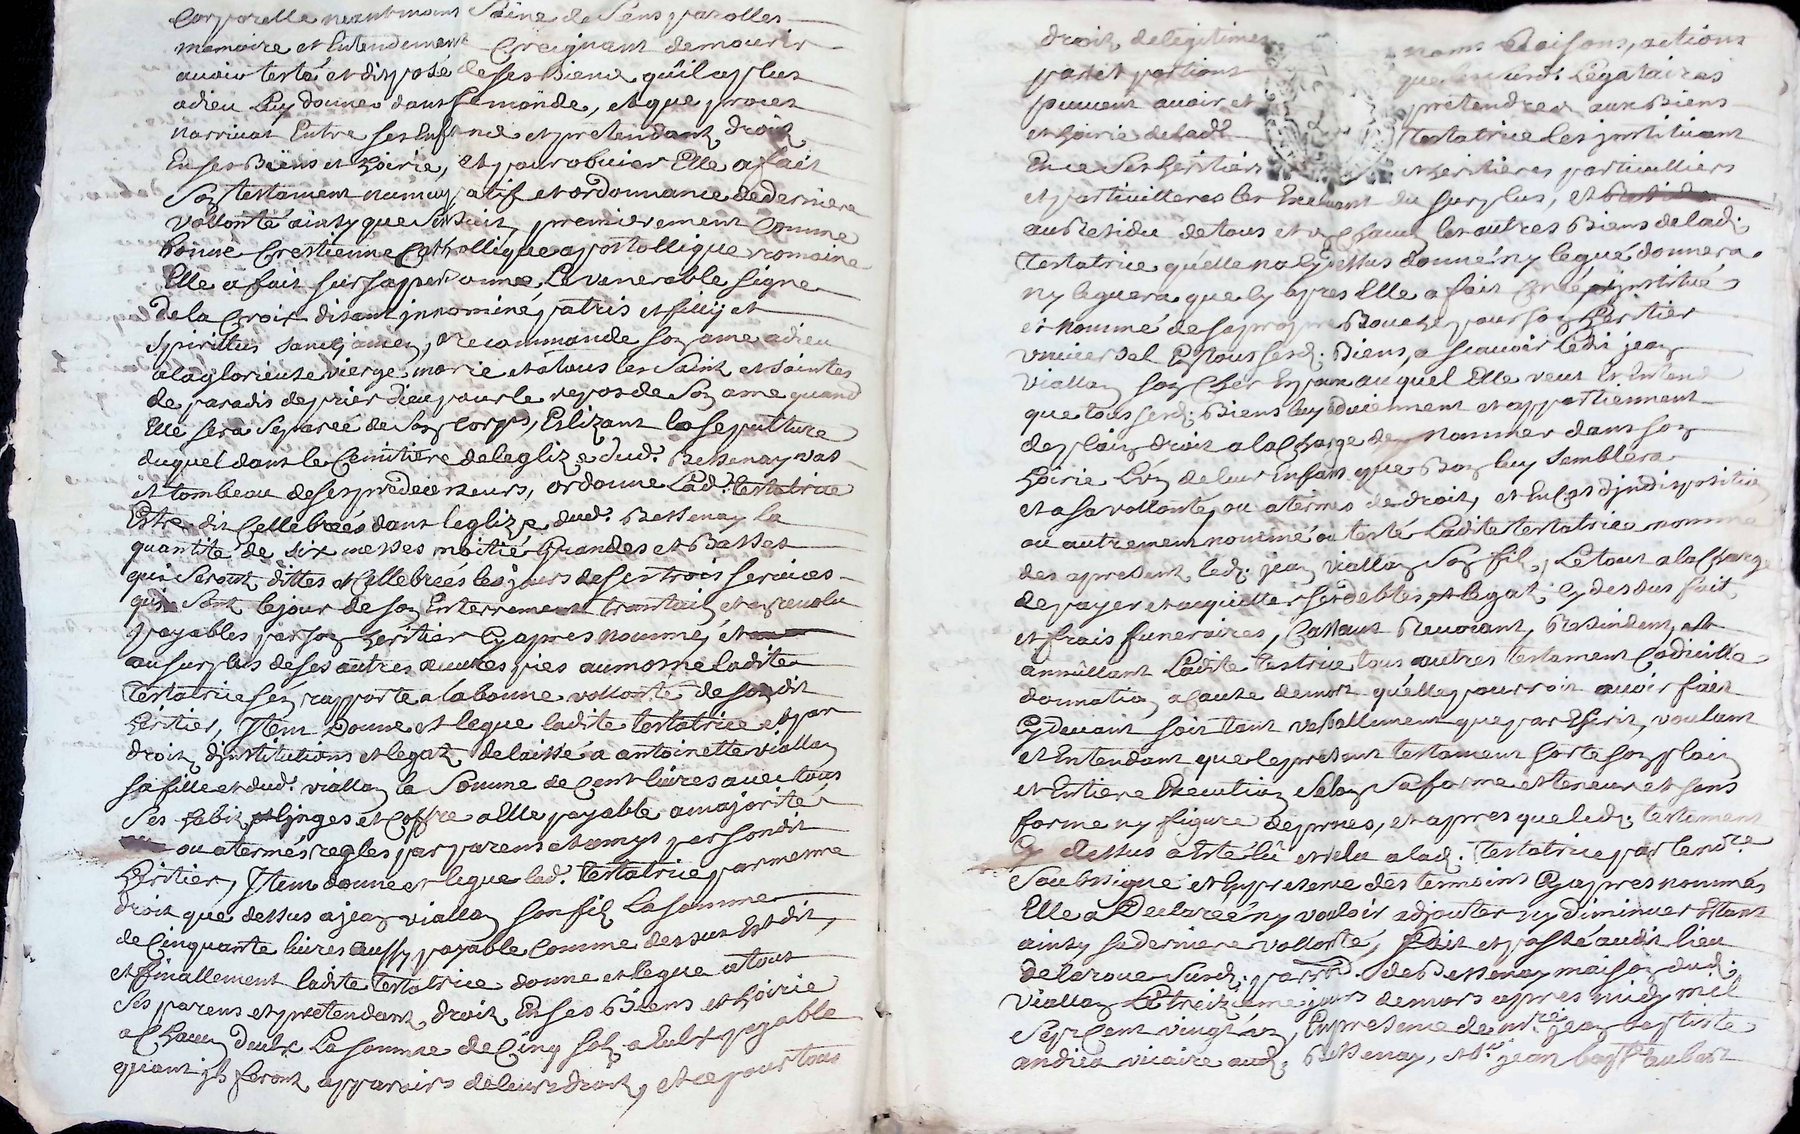 Corporelle neantmoins Saine de Sens parolles
memoire et Entendement Craignant de mourir
avoir testé et disposé de ses Biens qu'il a plus
a dieu Luy donner dans ce monde, et que proces
n'arrivat Entre ses Enfans et pretendant droit
En ses Biens et hoirie, et pour obvier Elle a fait
Son testament nuncupatif et ordonnance de derniere
vollonté ainsy que s'en suit, premierement Comme
bonne Crestienne Catholique apostollique romaine
Elle a fait sur sa personne Le venerable signe
de la Croix disant in nomine patris et filij et
spiritus sancti amen, recommande son ame a dieu
a la glorieuse vierge marie et a tous les Saints et Saintes
de paradis de prier dieu pour le repos de Son ame quand
Elle sera Separée de Son Corps, Elizant la sepulture
duquel dans le Cemitiere de leglize dud. Bessenay vas
et tombeau de ses predecesseurs, ordonne Lad. testatrice
Estre dit Cellebrées dans leglize dud. Bessenay la
quantité de six messes moitié Grandes et Basses
qui Seront dittes et Cellebrées les jours de ses trois services
qui Sont le jour de son Enterrement trantain et an revolu
payables par son heritier Cy apres nommé, et
au surplus de ses autres œuvres pies aumosne ladite
testatrice s'en rapporte a la bonne vollonté de Sondit
heritier, Item Donne et legue ladite testatrice et par
droit d'institutions et legat delaissé a antoinette viallon
sa fille et dud. viallon la Somme de Cent livres avec tous
Ses habit, et linges et Coffre a Elle payable a majorité
ou a termes reglés par parens et amys par Sondit
heritier, Item donne et legue lad. testatrice par mesme
droit que dessus a jean viallon Son fils La somme
de Cinquante livres aussy payable Comme dessus Est dit,
et finallement ladite testatrice donne et legue a tous
Ses parens et pretendant droit En ses Biens et hoirie
a Chacun d'eulx La somme de Cinq sols a Eulx payable
quant ils feront apparoirs de leurs droit, et ce pour tous
droits de legitimes noms Raisons, actions
part et portions que les susd. Legataires
peuvent avoir et pretendre aux Biens
et hoirie de lad. testatrice les instituant
En ce Ses heritiers et heritieres particulliers
et particulieres les Excluant du surplus, et
au Residu de tous et un Chacun les autres Biens de lad.
testatrice quelle na Cy dessus donné ny legué donnera
ny leguera que Cy apres Elle a fait Créé institué
et Nommé de sa propre Bouche pour son heritier
vniversel En tous sesd. Biens, a scauoir ledit jean
viallon son Cher Epoux auquel Elle veut Et Entend
que tous sesd. Biens luy adviennent et appartiennent
de plain droit a la Charge de Nommer dans son
hoirie L'un de leur Enfans que Bon luy semblera
et a sa vollonté, ou a termes de droit, et En Cas d'indisposition
ou autrement nommé ou testé Ladite testatrice nomme
des a present led. jean viallon Son fils, Le tout a la Charge
de payer et acquitter ses debtes, et legats Cy dessus fait
et frais funeraires, Cassant Revocant, Resindent, et
annullant Ladite testrice tous autres testament Codicille
donnation a Cause de mort quelle pourroit avoir fait
Cy devant soit tant verballement que par Escrit, voulant
et Entendant que le present testament sorte son plain
et Entiere Execution Selon Sa forme et teneur et sans
forme ny figure de proces, et apres que led. testament
Cy dessus a Esté lû et relu a lad. testatrice par le no.re
Soubsigné et En presence des temoins Cy apres nommés
Elle a Declaré ny vouloir adjouter ny diminuer Estant
ainsy sa derniere vollonté, Fait et passé audit lieu
de la roue susd. parr. de Bessenay maison dud.
viallon Le treizieme jours de mars apres midy mil
Sept Cent vingt un, En presence de m.re jean baptiste
andieu vicaire aud. Bessenay, et S.r jean bap.te aubert